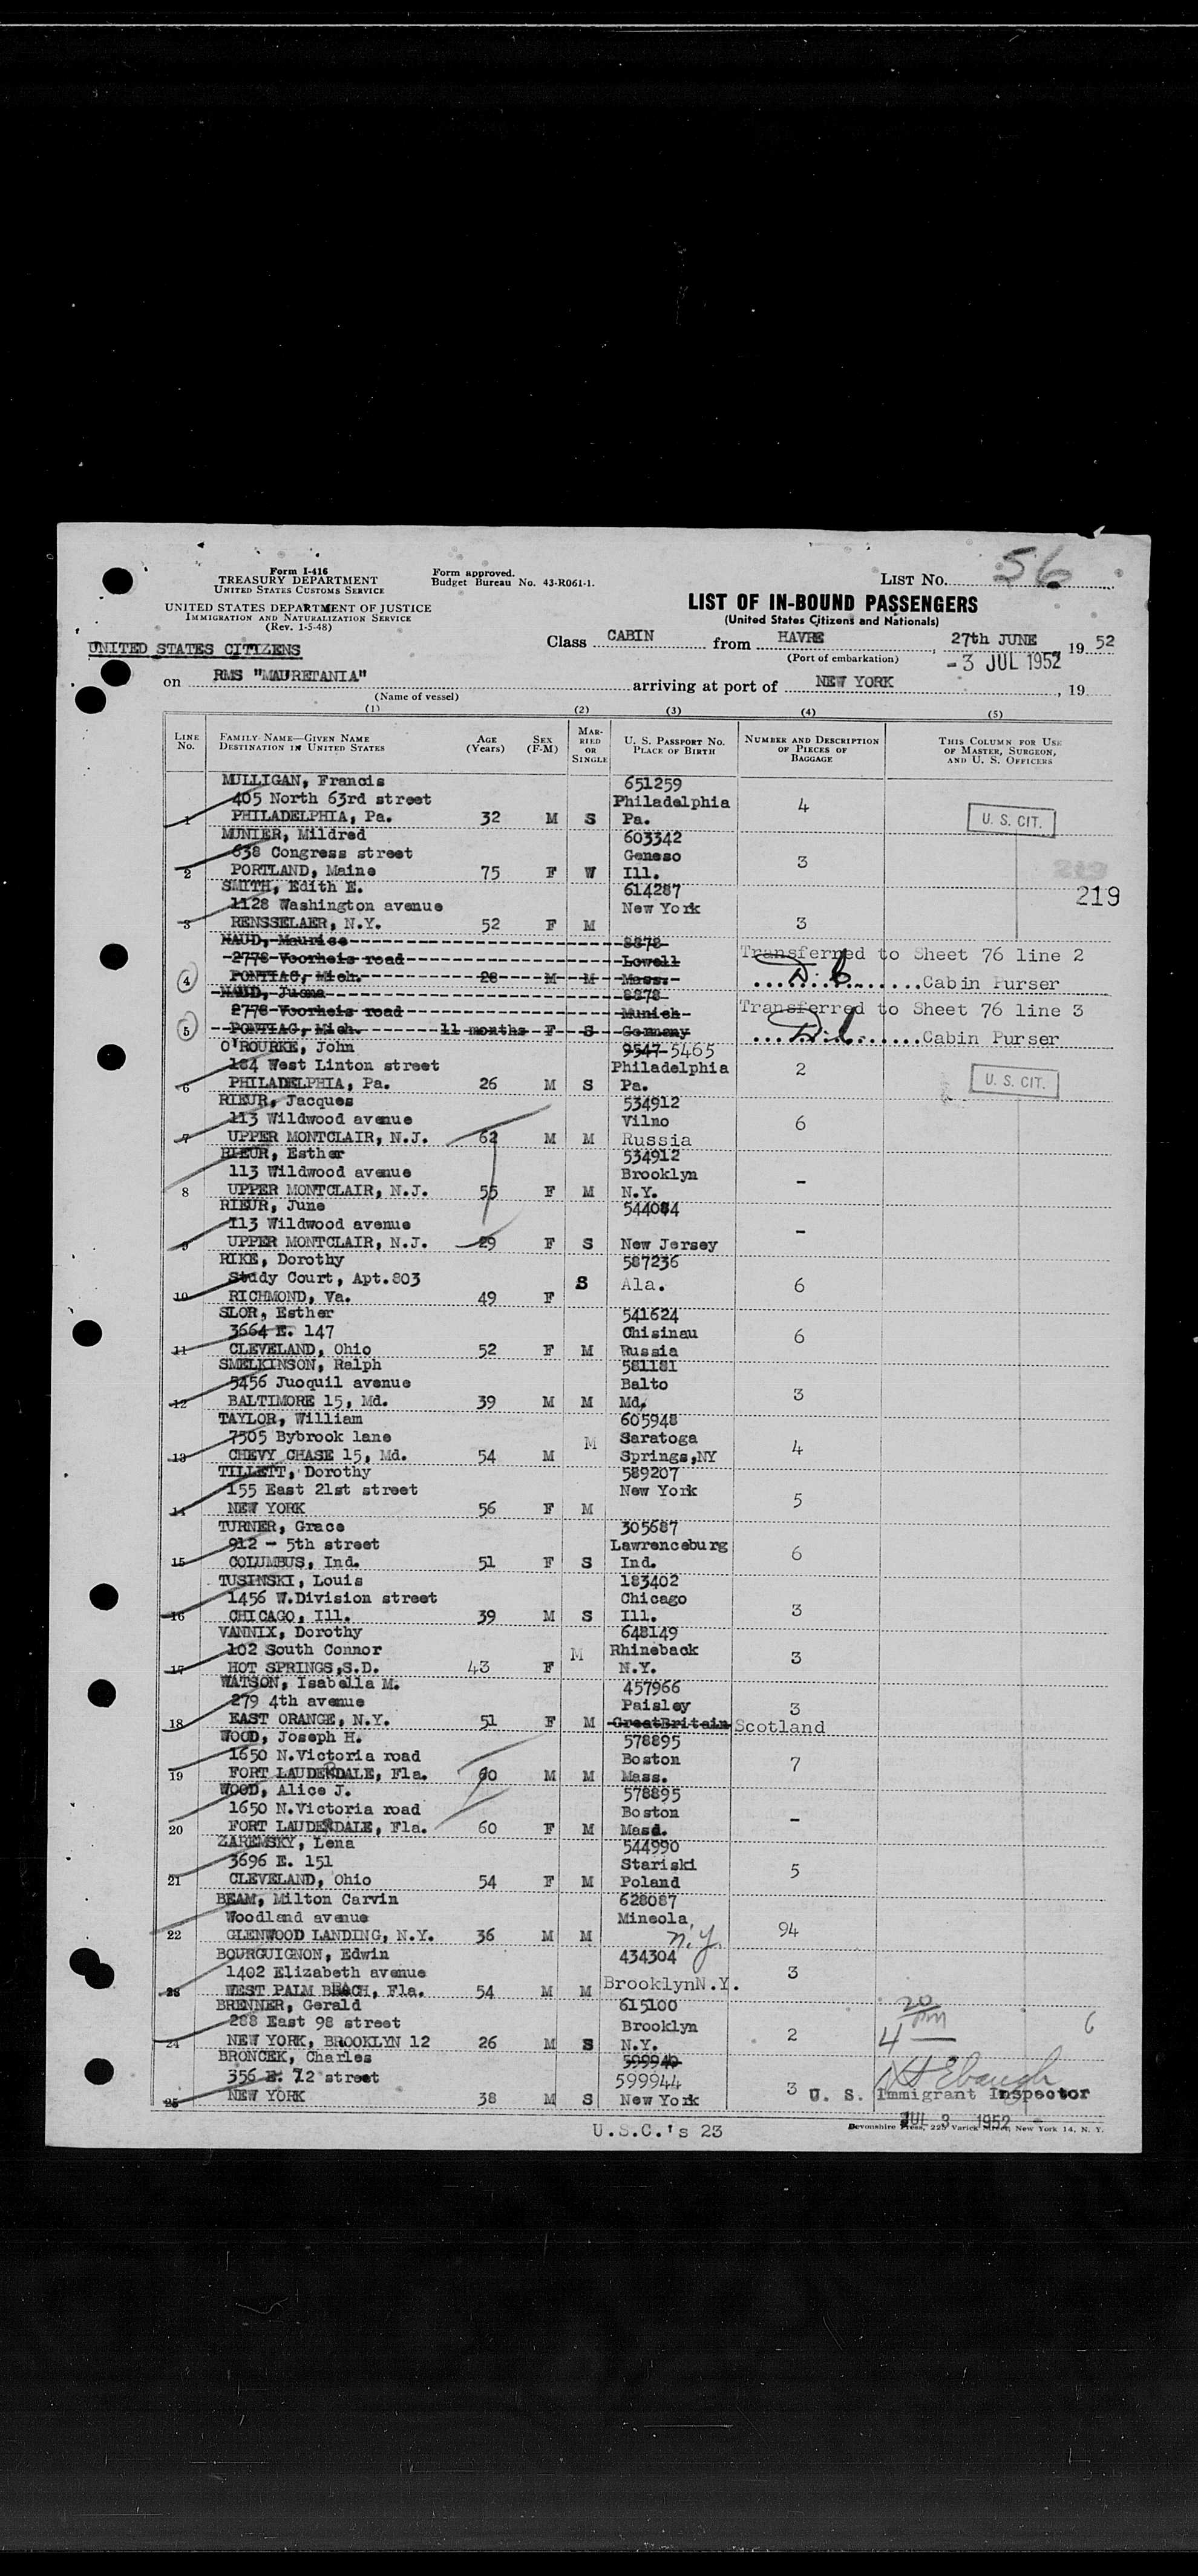 56
Form I-416
TREASURY DEPARTMENT
UNITED STATES CUSTOMS SERVICE
Form approved.
Budget Bureau No. 43-R061-1.
LIST NO.
UNITED STATES DEPARTMENT OF JUSTICE
IMMIGRATION AND NATURALIZATION SERVICE
(Rev. 1-5-48)
LIST OF IN-BOUND PASSENGERS
(United States Citizens and Nationals)
UNITED STATES CITIZENS
Class CABIN from HAVRE, 27th JUNE 1952
(Port of embarkation)
-3 JUL 1952
on RMS "MAURETANIA" arriving at port of NEW YORK, 19
(Name of vessel)
(1) (2) (3) (4) (5)
LINE No. FAMILY NAME—GIVEN NAME DESTINATION IN UNITED STATES AGE (Years) SEX (F-M) MARRIED OR SINGLE U. S. PASSPORT NO. PLACE OF BIRTH NUMBER AND DESCRIPTION OF PIECES OF BAGGAGE THIS COLUMN FOR USE OF MASTER, SURGEON, AND U. S. OFFICERS
MULLIGAN, Francis 651259
405 North 63rd street Philadelphia 4
1 PHILADELPHIA, Pa. 32 M S Pa. U. S. CIT.
MUNIER, Mildred 603342
638 Congress street Geneso 3
2 PORTLAND, Maine 75 F W Ill. 219
SMITH, Edith E. 614287 219
1128 Washington avenue New York
3 RENSSELAER, N.Y. 52 F M 3
NAUD, Maurice 8878
2778 Voorheis road Lowell Transferred to Sheet 76 line 2
4 PONTIAC, Mich. 28 M M Mass. Cabin Purser
NAUD, Juona 8878
2778 Voorheis road Munich Transferred to Sheet 76 line 3
5 PONTIAC, Mich. 11 months F S Germany Cabin Purser
O'ROURKE, John 9547 5465
184 West Linton street Philadelphia 2
6 PHILADELPHIA, Pa. 26 M S Pa. U. S. CIT.
RIEUR, Jacques 534912
113 Wildwood avenue Vilno 6
7 UPPER MONTCLAIR, N.J. 62 M M Russia
RIEUR, Esther 534912
113 Wildwood avenue Brooklyn -
8 UPPER MONTCLAIR, N.J. 55 F M N.Y.
RIEUR, June 544084
113 Wildwood avenue -
9 UPPER MONTCLAIR, N.J. 29 F S New Jersey
RIKE, Dorothy 587236
Study Court, Apt.803 S Ala. 6
10 RICHMOND, Va. 49 F
SLOR, Esther 541624
3664 E. 147 Chisinau 6
11 CLEVELAND, Ohio 52 F M Russia
SMELKINSON, Ralph 581181
5456 Juoquil avenue Balto 3
12 BALTIMORE 15, Md. 39 M M Md.
TAYLOR, William 605948
7505 Bybrook lane M Saratoga 4
13 CHEVY CHASE 15, Md. 54 M Springs,NY
TILLETT, Dorothy 589207
155 East 21st street New York 5
14 NEW YORK 56 F M
TURNER, Grace 305687
912 - 5th street Lawrenceburg 6
15 COLUMBUS, Ind. 51 F S Ind.
TUSINSKI, Louis 183402
1456 W.Division street Chicago 3
16 CHICAGO, Ill. 39 M S Ill.
VANNIX, Dorothy 648149
102 South Connor M Rhineback 3
17 HOT SPRINGS,S.D. 43 F N.Y.
WATSON, Isabella M. 457966
279 4th avenue Paisley 3
18 EAST ORANGE, N.Y. 51 F M GreatBritain Scotland
WOOD, Joseph H. 578895
1650 N.Victoria road Boston 7
19 FORT LAUDERDALE, Fla. 60 M M Mass.
WOOD, Alice J. 578895
1650 N.Victoria road Boston -
20 FORT LAUDERDALE, Fla. 60 F M Masd.
ZAREMSKY, Lena 544990
3696 E. 151 Stariski 5
21 CLEVELAND, Ohio 54 F M Poland
BEAM, Milton Carvin 628087
Woodland avenue Mineola, 94
22 GLENWOOD LANDING, N.Y. 36 M M n.y.
BOURGUIGNON, Edwin 434304
1402 Elizabeth avenue 3
23 WEST PALM BEACH, Fla. 54 M M BrooklynN.Y.
BRENNER, Gerald 615100 20
288 East 98 street Brooklyn 2 4 6
24 NEW YORK, BROOKLYN 12 26 M S N.Y.
BRONCEK, Charles 599940
356 E. 72 street 599944 3 U. S. Immigrant Inspector
25 NEW YORK 38 M S New York
JUL 3 1952
U.S.C.'s 23
Devonshire Press, 225 Varick Street, New York 14, N. Y.